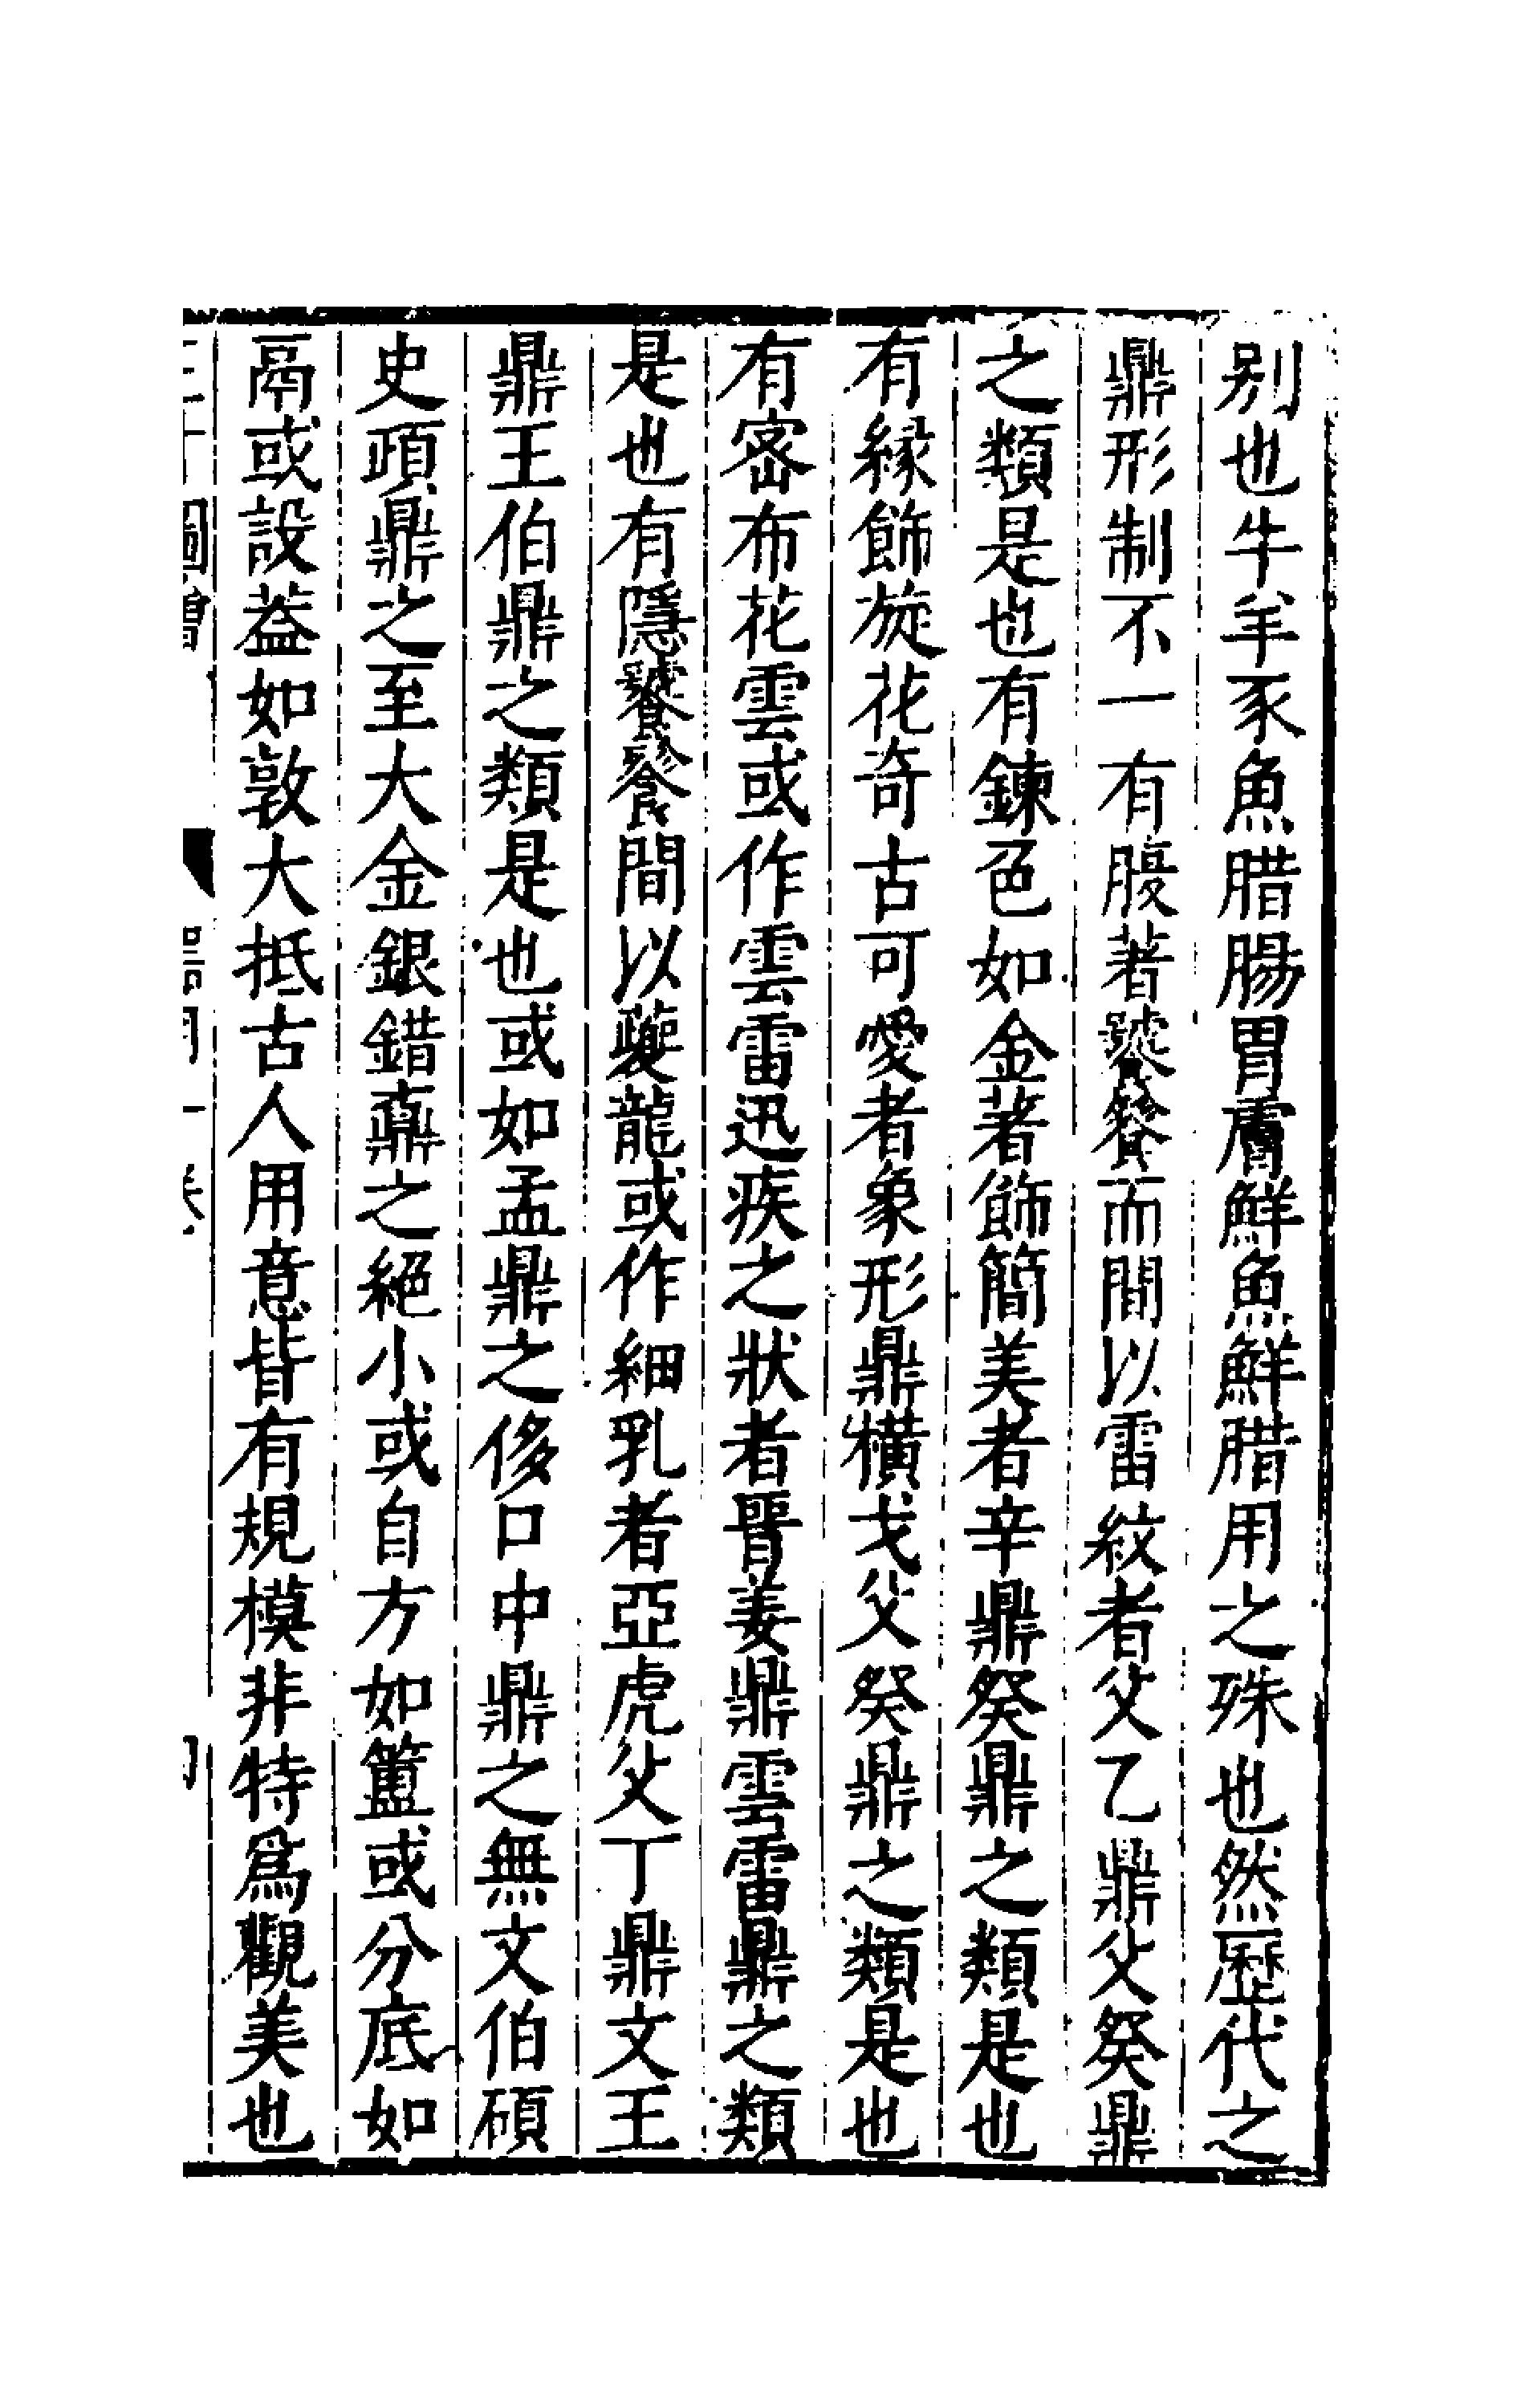 别也牛羊豕魚腊腸胃膚鮮魚鮮腊用之殊也然歷代之
鼎形制不一有腹著饕餮而間以雷紋者父乙鼎父癸鼎
之類是也有鍊色如金著飾簡美者辛鼎癸鼎之類是也
有緣飾旋花奇古可愛者象形鼎橫戈父癸鼎之類是也
有宻布花雲或作雲雷迅疾之狀者晉姜鼎雲雷鼎之類
是也有隱饕餮間以夔龍或作細乳者亞虎父丁鼎文王
鼎王伯鼎之類是也或如孟鼎之侈口中鼎之無文伯碩
史頙鼎之至大金銀錯鼒之絕小或自方如簠或分底如
鬲或設葢如敦大抵古人用意皆有規模非特爲觀美也
圖會 器用一卷